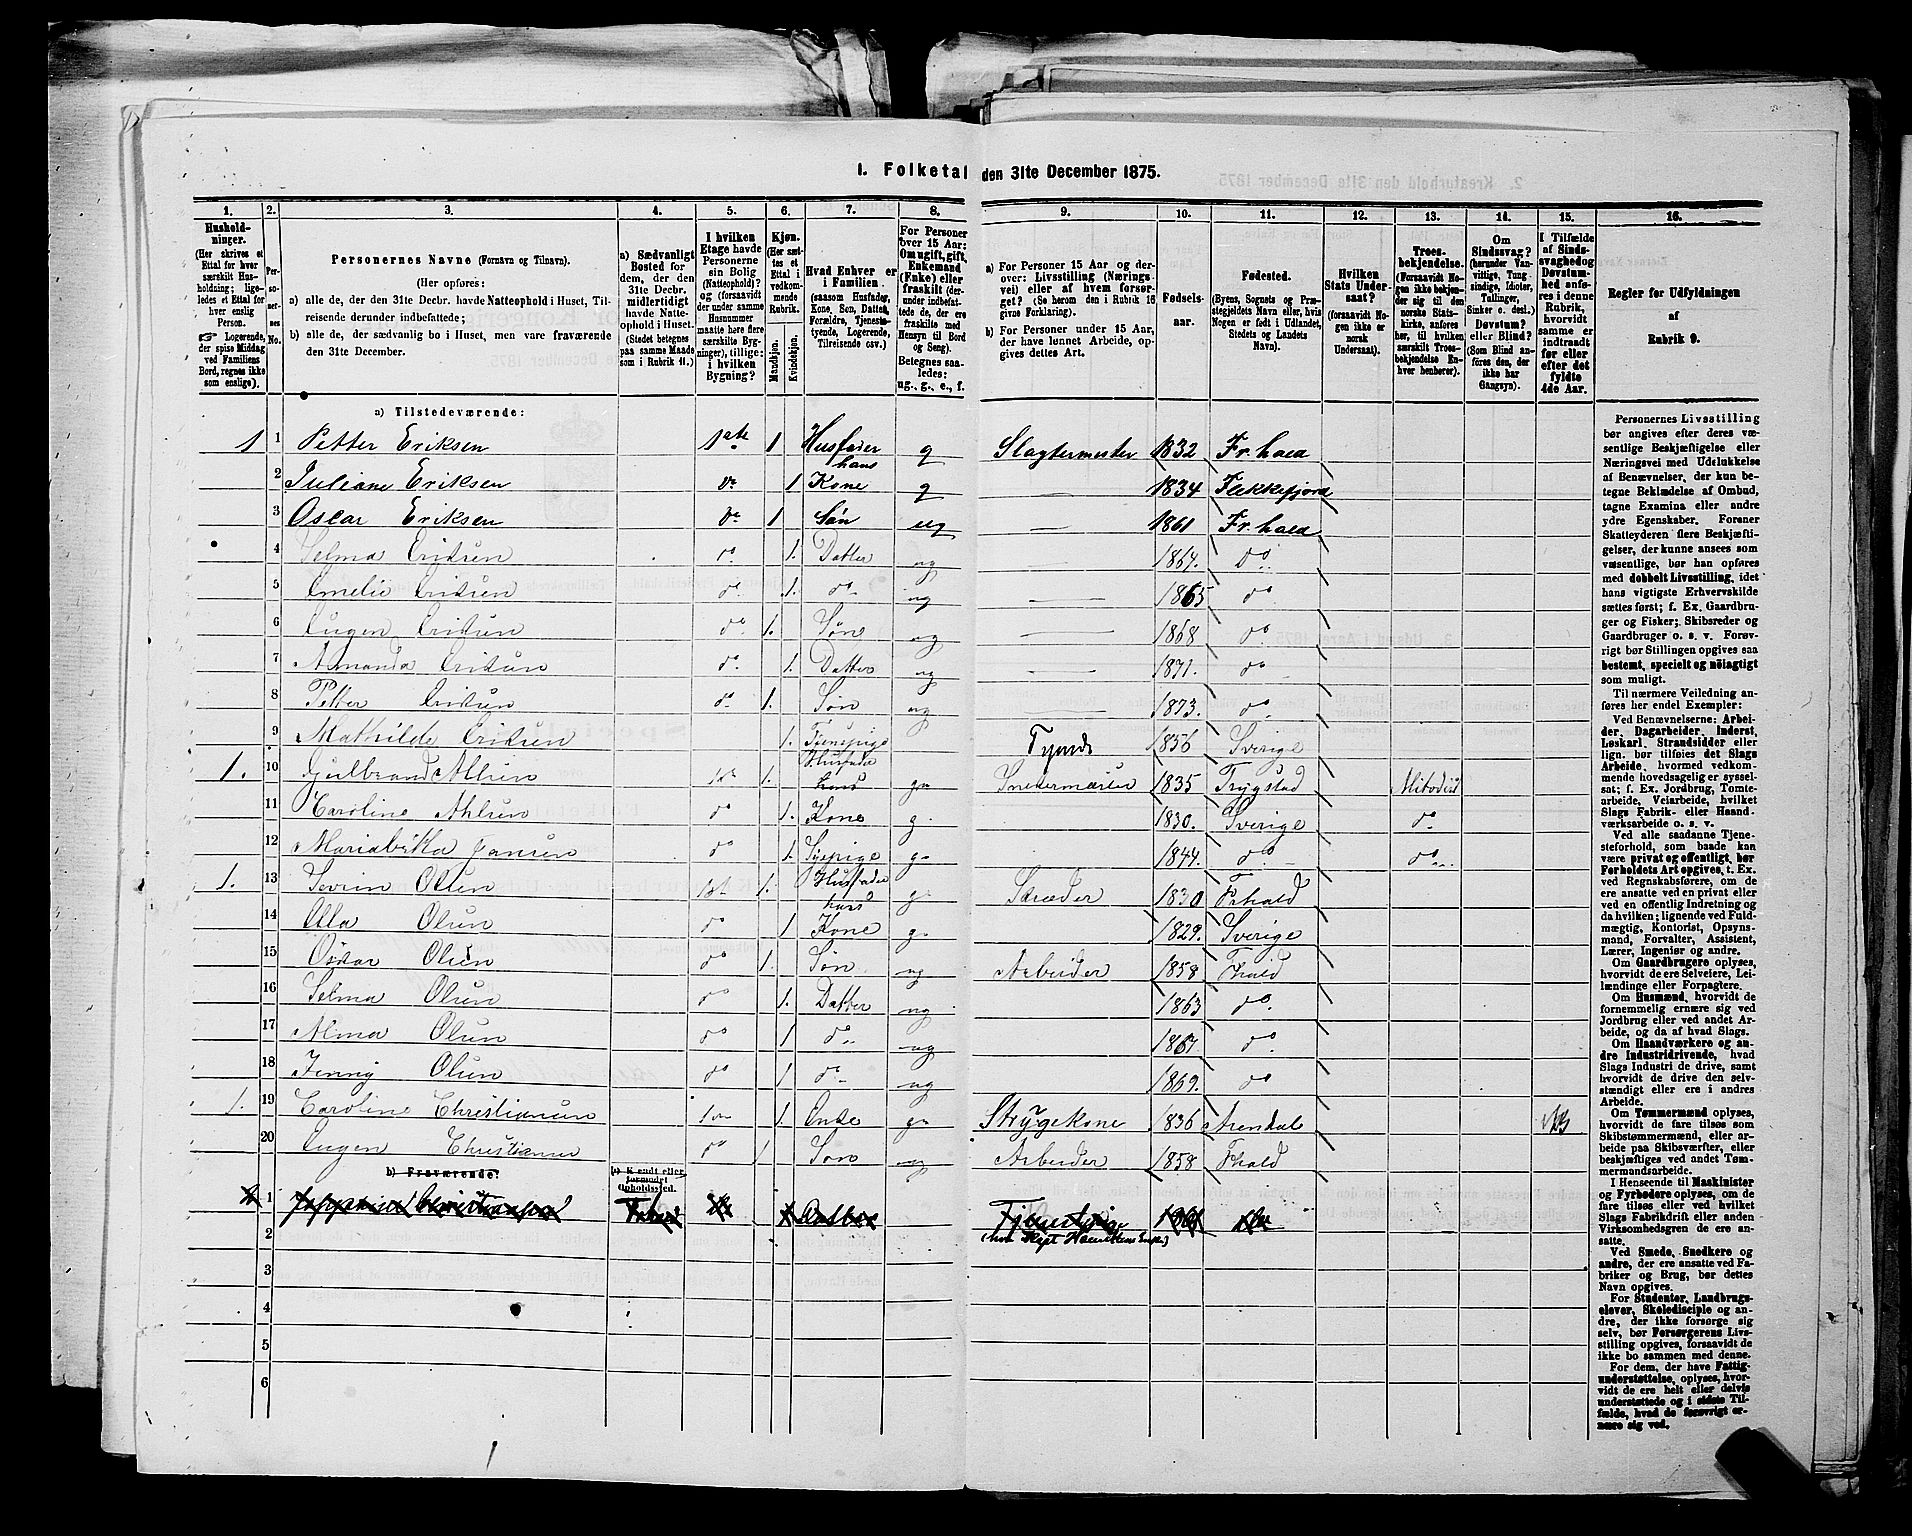 I. Folketal den 31te December 1875.
1. 2. 3. 4. 5. 6. 7. 8. 9. 10. 11. 12. 13. 14. 15. 16.
Husholdninger.
(Her skrives et Ettal for hver særskilt Husholdning; ligeledes et Ettal for hver enslig Person.
Logerende, der spise Middag ved Familiens Bord, regnes ikke som enslige).
Personernes No.
Personernes Navne (Fornavn og Tilnavn).
(Her opføres:
a) alle de, der den 31te Decbr. havde Natteophold i Huset, Tilreisende derunder indbefattede;
b) alle de, der sædvanlig bo i Huset, men vare fraværende den 31te December.
a) Sædvanligt Bosted for dem, der den 31te Decbr. midlertidigt havde Natteophold i Huset. (Stedet betegnes paa samme Maade som i Rubrik 11.)
I hvilken Etage havde Personerne sin Bolig (Natteophold)? og (forsaavidt der under samme Husnummer maatte høre flere særskilte Bygninger), tillige: i hvilken Bygning?
Kjøn.
(Her sættes et Ettal i vedkommende Rubrik.
Mandkjøn. Kvindekjøn.
Hvad Enhver er i Familien.
(saasom Husfader, Kone, Søn, Datter, Forældre, Tjenestetyende, Logerende, Tilreisende csv.)
For Personer over 15 Aar: Om ugift, gift, Enkemand (Enke) eller fraskilt (derunder indbefattede de, der ere fraskilte med Hensyn til Bord og Seng).
Betegnes saaledes: ug., g., e., f.
a) For Personer 15 Aar og derover: Livsstilling (Næringsvei) eller af hvem forsørget? (Se herom den i Rubrik 16 givne Forklaring).
b) For Personer under 15 Aar, der have lønnet Arbeide, opgives dettes Art.
Fødselsaar.
Fødested.
(Byens, Sognets og Præstegjeldets Navn, eller, hvis Nogen er født i Udlandet, Stedets og Landets Navn).
Hvilken Stats Undersaat?
(forsaavidt Nogen ikke er norsk Undersaat).
Troesbekjendelse.
(Forsaavidt Nogen ikke bekjender sig til den norske Statskirke, anføres her, til hvilken særskilt Troesbekjendelse Enhver henhører).
Om Sindssvag? (herunder Vanvittige, Tungsindige, Idioter, Tullinger, Sinker o. desl.) Døvstum? eller Blind? (Som Blind anføres den, der ikke har Gangsyn).
I Tilfælde af Sindssvaghed og Døvstumhed anføres i denne Rubrik, hvorvidt samme er indtraadt før eller efter det fyldte 4de Aar.
Regler for Udfyldningen af Rubrik 9.
a) Tilstedeværende:
1 1 Petter Eriksen 1ste 1 Husfader g Slagtermester 1832 Fr.hald
2 Juliane Eriksen do 1 hans Kone g 1834 Flekkefjord
3 Oscar Eriksen do 1 Søn ug 1861 Fr.hald
4 Selma Eriksen do 1. Datter ug 1864. do
5 Emelie Eriksen do 1. do ug 1865 do
6 Eugen Eriksen do 1. Søn ug 1868 do
7 Amanda Eriksen do 1. Datter ug 1871. do
8 Petter Eriksen do 1. Søn ug 1873. do
9 Mathilde Eriksen 1. Tjenepige Tyende 1856 Sverige
1. 10 Gulbrand Ahlsen 1ste 1. Husfader g. Snekermester 1835 Trygstad Mitodist
11 Caroline Ahlsen do 1. hans Kone g. 1830. Sverige do
12 Mariabrita Jansen do 1. Sypige g. 1844. do do
1. 13 Sevrin Olsen 1st 1. Husfader g. Skræder 1830 Frhald
14 Olla Olsen do 1 hans Kone g. 1829. Sverige
15 Oskar Olsen do 1. Søn ug Arbeider 1858 Fhald
16 Selma Olsen do 1. Datter ug 1863 do
17 Alma Olsen do 1 do ug 1867 do
18 Jenny Olsen do 1 do ug 1869. do
1. 19 Caroline Christiansen 1ste 1. Enke g. Strygekone 1836 Arendal
20 Eugen Christiansen do 1 Søn ug Arbeider 1858 Fhald
b) Fraværende:
b) Kjendt eller formodet Opholdssted.
1 Christiansen Datter Tjenestepige
2
3
4
5
6
Personernes Livsstilling bør angives efter deres væsentlige Beskjæftigelse eller Næringsvei med Udelukkelse af Benævnelser, der kun betegne Beklædelse af Ombud, tagne Examina eller andre ydre Egenskaber. Forener Skatteyderen flere Beskjæftigelser, der kunne ansees som væsentlige, bør han opføres med dobbelt Livsstilling, idet hans vigtigste Erhvervskilde sættes først; f. Ex. Gaardbruger og Fisker; Skibsreder og Gaardbruger o. s. v. Forøvrigt bør Stillingen opgives saa bestemt, specielt og nøiagtigt som muligt.
Til nærmere Veiledning anføres her endel Exempler:
Ved Benævnelserne: Arbeider, Dagarbeider, Inderst, Løskarl, Strandsidder eller lign. bør tilføies det Slags Arbeide, hvormed vedkommende hovedsagelig er sysselsat; f. Ex. Jordbrug, Tomtearbeide, Veiarbeide, hvilket Slags Fabrik- eller Haandværksarbeide o. s. v.
Ved alle saadanne Tjenesteforhold, som baade kan være privat og offentligt, bør Forholdets Art opgives, t. Ex. ved Regnskabsførere, om de ere ansatte ved en privat eller ved en offentlig Indretning og da hvilken; lignende ved Fuldmægtig, Kontorist, Opsynsmand, Forvalter, Assistent, Lærer, Ingeniør og andre.
Om Gaardbrugere oplyses, hvorvidt de ere Selveiere, Leilændinge eller Forpagtere.
Om Husmænd, hvorvidt de fornemmelig ernære sig ved Jordbrug eller ved andet Arbeide, og da af hvad Slags.
Om Haandværkere og andre Industridrivende, hvad Slags Industri de drive, samt hvorvidt de drive den selvstændigt eller ere i andres Arbeide.
Om Tømmermænd oplyses, hvorvidt de fare tilsøs som Skibstømmermænd, eller arbeide paa Skibsværfter, eller beskjæftiges ved andet Tømmermandsarbeide.
I Henseende til Maskinister og Fyrbødere oplyses, om de fare tilsøs eller ved hvilket Slags Fabrikdrift eller anden Virksomhedsgren de ere ansatte.
Ved Smede, Snedkere og andre, der ere ansatte ved Fabriker og Brug, bør dettes Navn opgives.
For Studenter, Landbrugselever, Skoledisciple og andre, der ikke forsørge sig selv, bør Forsørgerens Livsstilling opgives, forsaavidt de ikke bo sammen med denne.
For dem, der have Fattigunderstøttelse, oplyses, hvorvidt de ere helt eller delvis understøttede og i sidste Tilfælde, hvad de forøvrigt ernære sig ved.